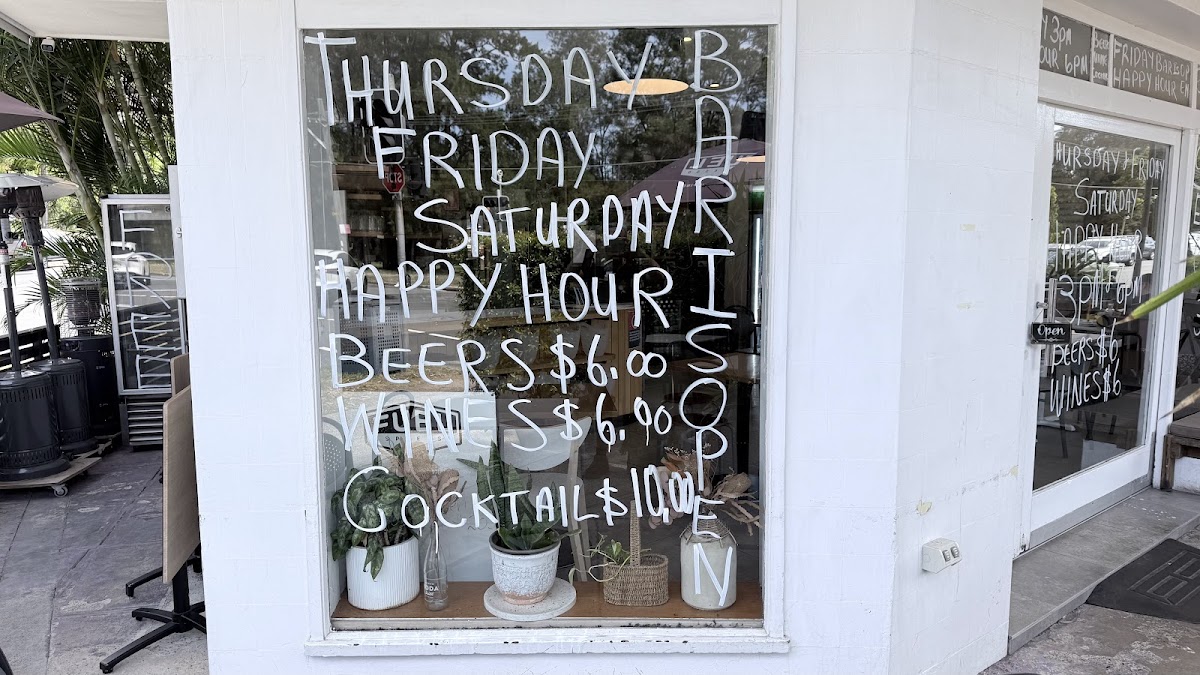 THURSDAY
FRIDAY
SATURDAY
HAPPY HOUR
BEERS $6.00
WINES $6.00
COCKTAIL $10,00
BAR IS OPEN
Y 3PM
OUR 6PM
FRIDAY BAR IS OP
HAPPY HOUR EN
THURSDAY & FRIDAY
SATURDAY
HAPPY HOUR
3PM 6PM
Open
BEERS $6
WINES $6
STOP